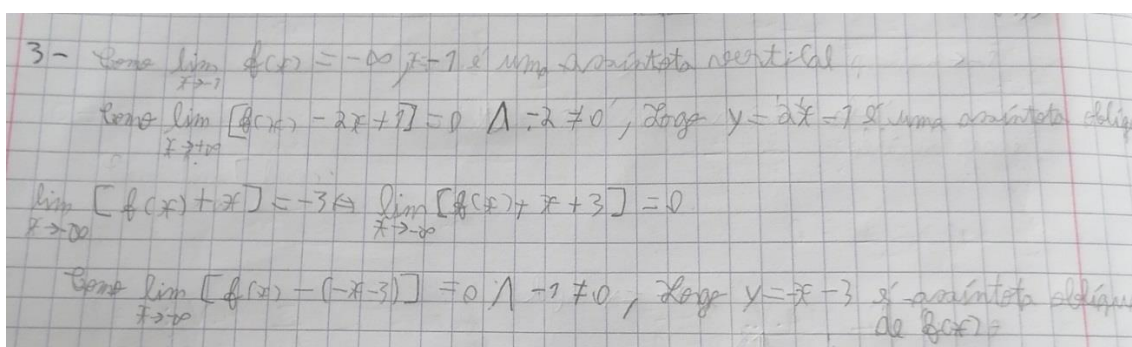 3- Como lim f(x) = -∞, x=-1 é uma assíntota vertical
x→-1
Como lim [f(x) - 2x+1] = 0 Λ -2 ≠ 0, Logo y = 2x-1 é uma assíntota
x→+∞
lim [f(x)+x] = -3 ⇔ lim [f(x)+x+3] = 0
x→-∞ x→-∞
Como lim [f(x) - (-x-3)] = 0 Λ -1 ≠ 0, Logo y = -x-3 é assíntota
x→-∞ de f(x)